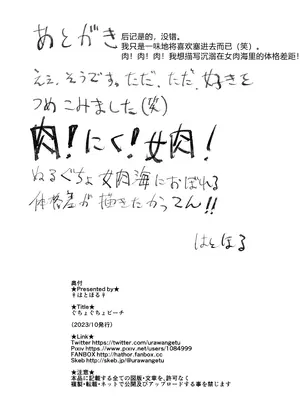 あとがき
后记是的，没错。
我只是一味地将喜欢塞进去而已（笑）。
肉！肉！肉！我想描写沉溺在女肉海里的体格差距！
ええ、そうです。ただ、ただ、好きを
つめこみました(笑)
肉！にく！女肉！
ぬるぐちょ女肉海におぼれる
体格差が描きたかってん!!
はとほる
奥付
★Presented by★
♀はとほる♀
★Title★
ぐちょぐちょビーチ
(2023/10発行)
★Link★
Twitter https://twitter.com/urawangetu
Pixiv https://www.pixiv.net/users/1084999
FANBOX http://hathor.fanbox.cc
Skeb http://skeb.jp/@urawangetu
★注意★
本品に記載する全ての図版・文章を、許可なく
複製・転載・ネットで公開及びアップロードする事を禁じます